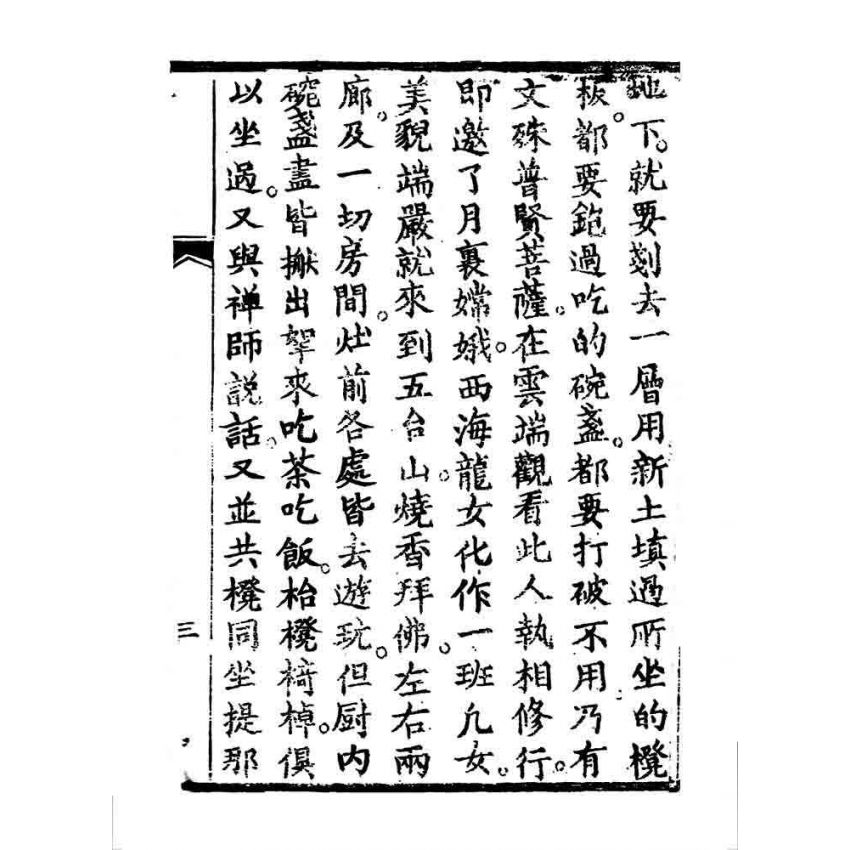 地下。就要剗去一層用新土填過所坐的櫈
板。都要鉋過吃的碗盞。都要打破不用乃有
文殊普賢菩薩。在雲端觀看此人執相修行。
即邀了月裏嫦娥。西海龍女化作一班凡女。
美貌端嚴就來到五台山。燒香拜佛。左右兩
廊。及一切房間。灶前各處皆去遊玩。但厨内
碗盞盡皆搬出拏來吃茶吃飯。枱櫈椅棹。俱
以坐過。又與禅師説話。又並共櫈同坐提那
三